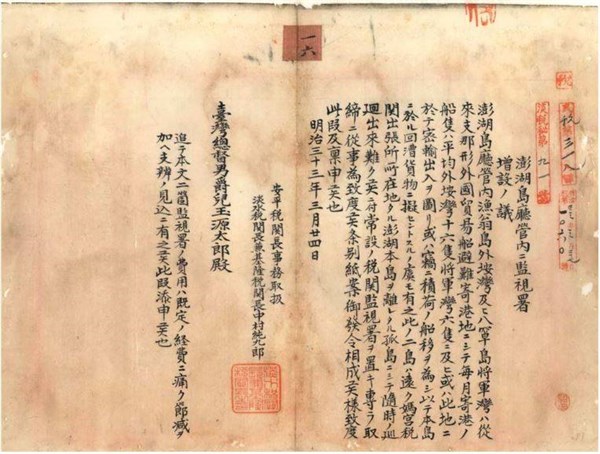 一六
澎湖島廳管内ニ監視署
増設ノ議
澎湖島廳管内漁翁島外垵灣及ヒ八罩島將軍灣ハ從
來支那形外國貿易船避難寄港地ニシテ毎月寄港ノ
船隻ハ平均外垵灣十六隻將軍灣六隻ニ及ヒ或ハ此地ニ
於テ密輸出入ヲ圖リ或ハ窃ニ積荷ノ船移ヲ為シ以テ本島
ニ於ル回漕貨物ニ擬セントスルノ虞モ有之此ノ二ハ遠ク媽宮税
関出張所所在地タル澎湖本島ヲ離レタル孤島ニシテ隨時ノ巡
廻出來難ク候ニ付常設ノ税関監視署ヲ置キ専ラ取
締ニ從事為致度候条別紙案御發令相成候様致度
此段及稟申候也
明治三十三年三月廿四日
安平税関長事務取扱
淡水税関長兼基隆税関長中村純九郎
臺灣總督男爵兒玉源太郎殿
追テ本文二箇監視署ノ費用ハ既定ノ経費ニ痛ク節減ヲ
加ヘ支辨ノ見込ニ有之候此段添申候也